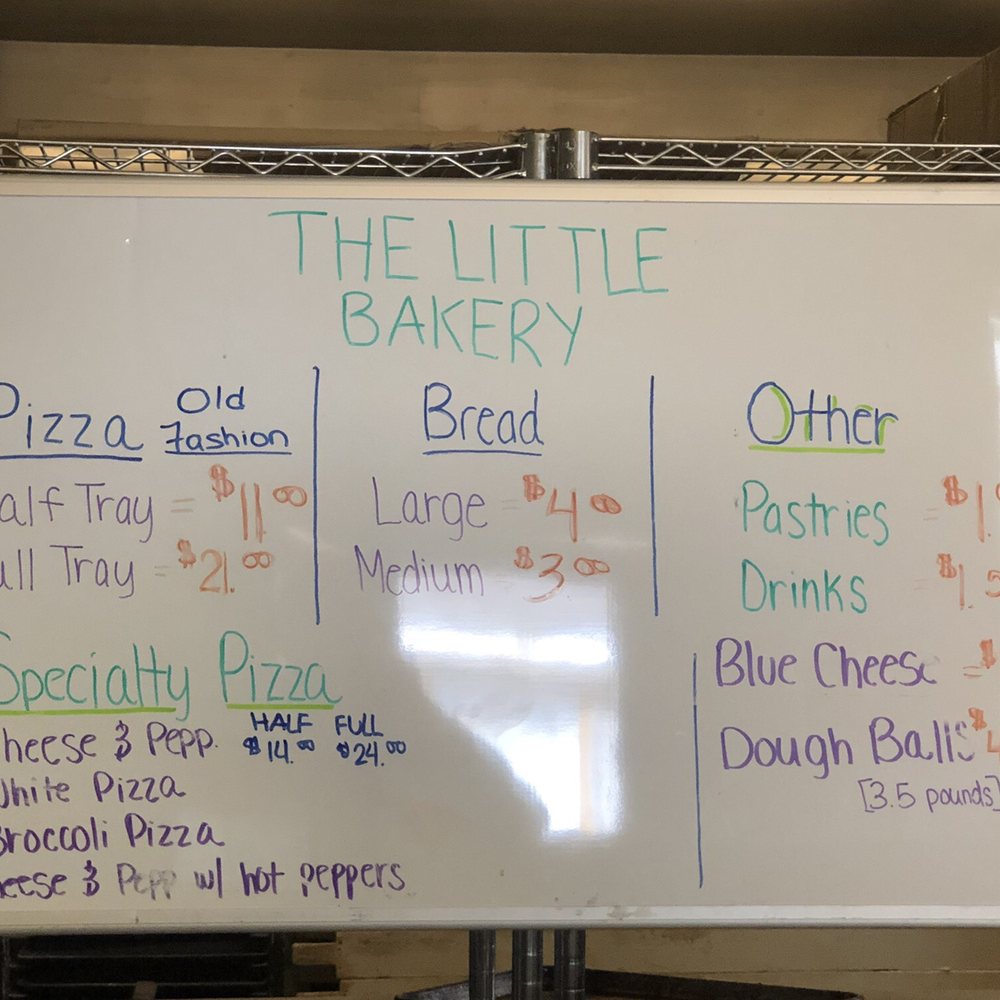 THE LITTLE
BAKERY
Pizza Old Fashion
alf Tray = $11.00
ull Tray = $21.00
Bread
Large = $4.00
Medium = $3.00
Other
Pastries = $1.
Drinks = $1.5
Blue Cheese = $
Dough Balls $4
[3.5 pounds]
Specialty Pizza
HALF FULL
heese & Pepp. $14.00 $24.00
White Pizza
Broccoli Pizza
eese & Pepp w/ hot peppers